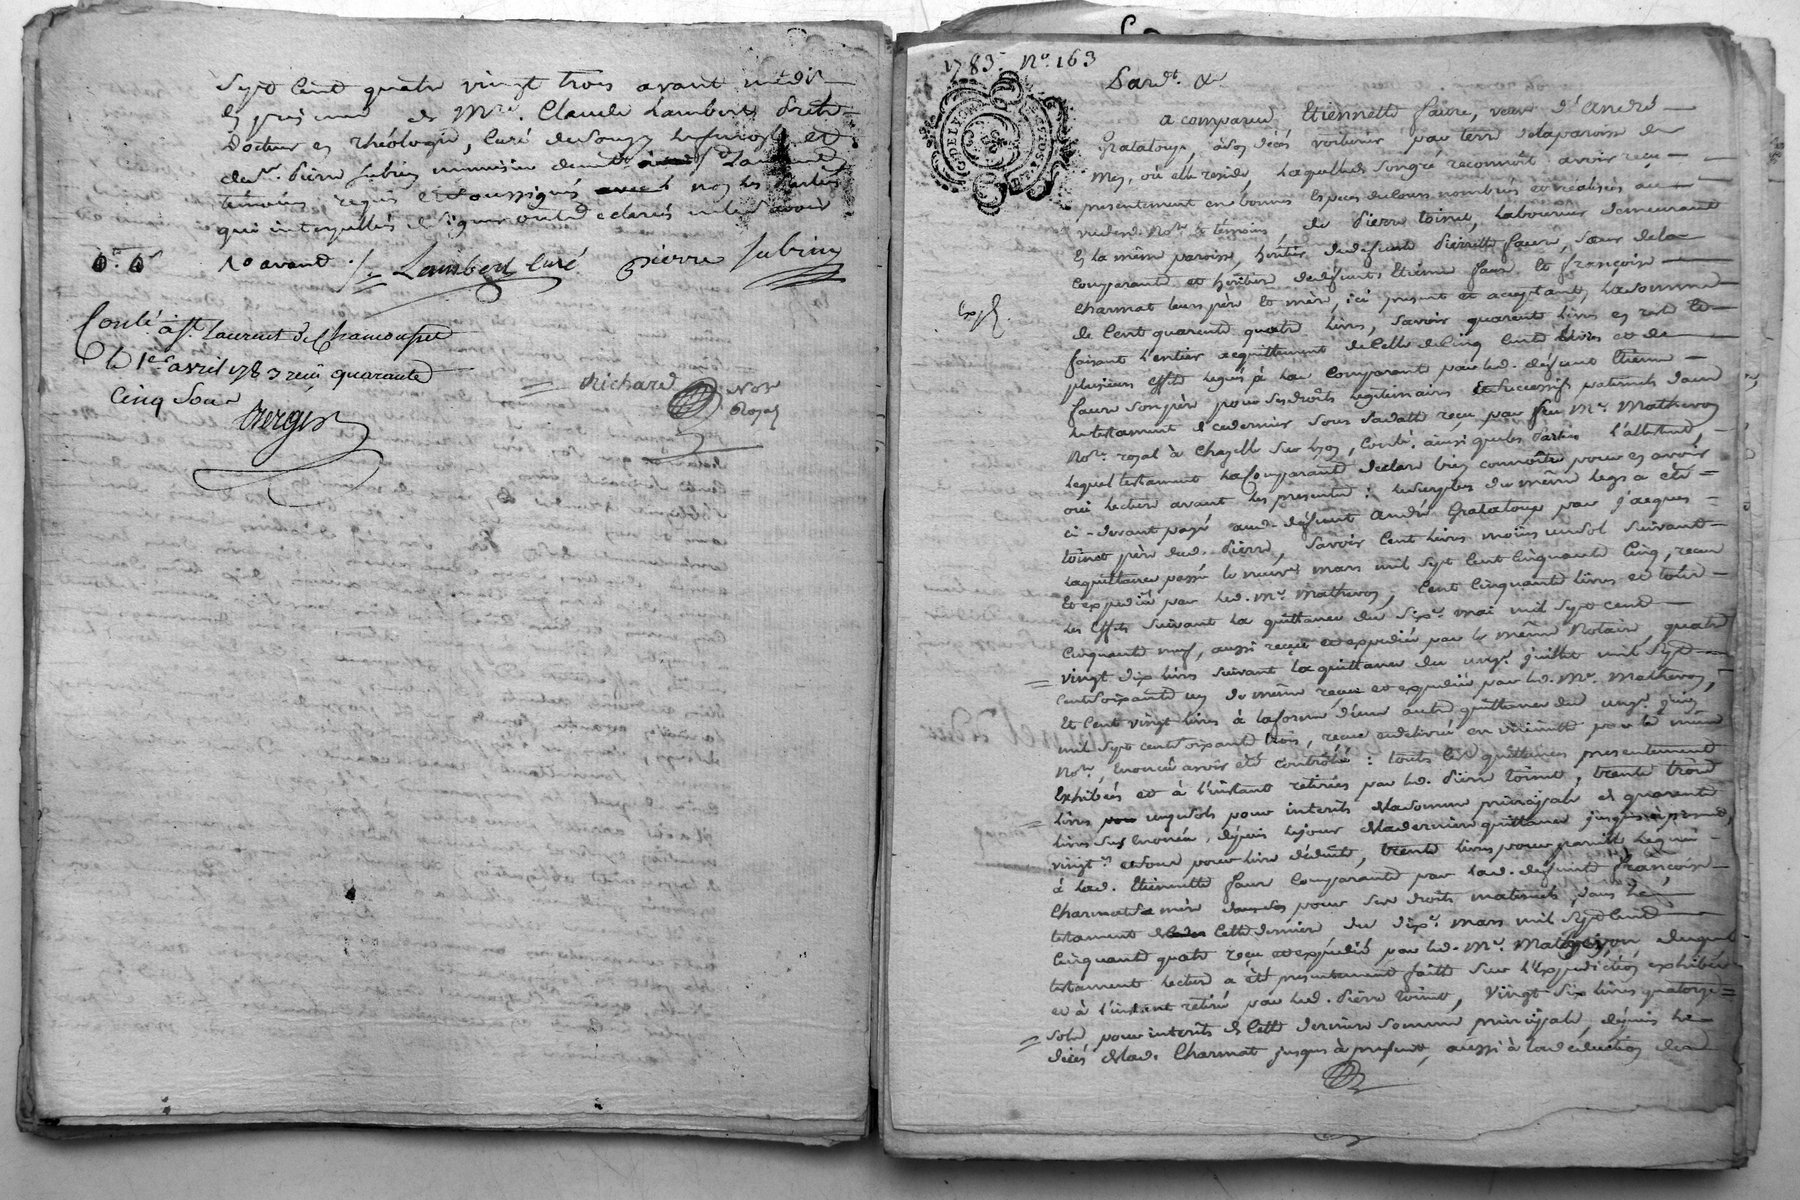 Sept Cent quatre vingt trois avant midi
En presence de Mre. Claude Lambert Pretre
Docteur en théologie, Curé de Souzy et
de Sr. Pierre Jubin
témoins requis et soussignés avec nous les parties
qui interpellés de signer ont declaré ne le savoir
Lambert Curé Pierre Jubin
Conlé à St. Laurent de Chamousset
le 1er avril 1783 reçu quarante
Cinq Sous
Verger
Richard Notre
Royal
1783. No. 163
Pardt. &
DE LYON
a comparu Etiennette faure, veuve d'André
Grataloup, à son décés voiturier par terre de la paroisse de
Mey, où elle reside, Laquelle de son gré reconnoit avoir reçu
presentement en bonnes Especes de Cours nombrées et réalisées au
vu de Nore. & témoins, de Pierre toinet, Laboureur demeurant
En la même paroisse, heritier de defunte Pierrette faure, sœur de la
Comparante et heritiere de defunts Etienne faure Et françoise
Charmat leurs père Et mère, ici present et acceptant, La somme
de Cent quarante quatre livres, Savoir quarante livres en reste Et
faisant L'entier acquittement de Celle de Cinq Cent livres et de
plusieurs effets legués à La Comparante par led. defunt Etienne
faure son père pour ses droits legitimaires Et successifs paternels dans
Le testament de ce dernier sous sa datte reçu par feu Me. Mathevon
Nore. royal à Chazelle sur Lyon, Conlé. ainsi que les Parties l'attestent
Lequel testament La Comparante declare bien connoitre pour en avoir
oui lecture avant Les presentes: Le surplus du même legs a été
ci-devant payé aud. defunt André Grataloup par Jacques
toinet père dud. Pierre, Savoir Cent livres moins un sol suivant
La quittance passée le neuve mars mil sept Cent Cinquante Cinq, reçue
Et expediée par led. Me. Mathevon, Cent Cinquante livres et tous
les Effets suivant La quittance du sixe. mai mil sept cent
Cinquante neuf, aussi reçue et expediée par le même Notaire, quatre
vingt dix livres suivant La quittance du juillet mil sept
Cent soixante un de même reçue et expediée par led. Me. Mathevon,
Et Cent vingt livres à la forme d'une autre quittance du juin
mil sept cent soixante trois, reçue par le même
Nore, Enoncée avoir été Contrôlée: toutes les quittances presentement
Exhibées et à l'instant retirées par led. Pierre toinet, trente trois
livres sols pour interets de la somme principale de quarante
livres sus Enoncée, depuis le jour de la derniere quittance jusqu'à présent,
trente livres pour pareille leguée
à lad. Etiennette faure Comparante par lad. defunte françoise
Charmat sa mère pour ses droits maternels, dans le
testament de Cette derniere du dixe. mars mil sept Cent
Cinquante quatre reçu et expédié par led. Me. Mathevon, duquel
testament lecture a été presentement faitte sur l'Expedition exhibée
et à l'instant retirée par led. Pierre toinet, vingt six livres quatorze
sols pour interets de Cette derniere somme principale, depuis le
décés de lad. Charmat jusques à present, aussi à la deduction